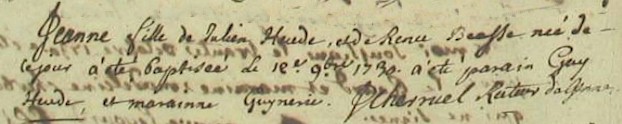 Jeanne fille de Julien Huede, et de Renee Beasse neé de
ce jour à été baptiseé le 12e. 9bre 1730. à été parain Guy
Huede, et marainne Guynerie. Recteur